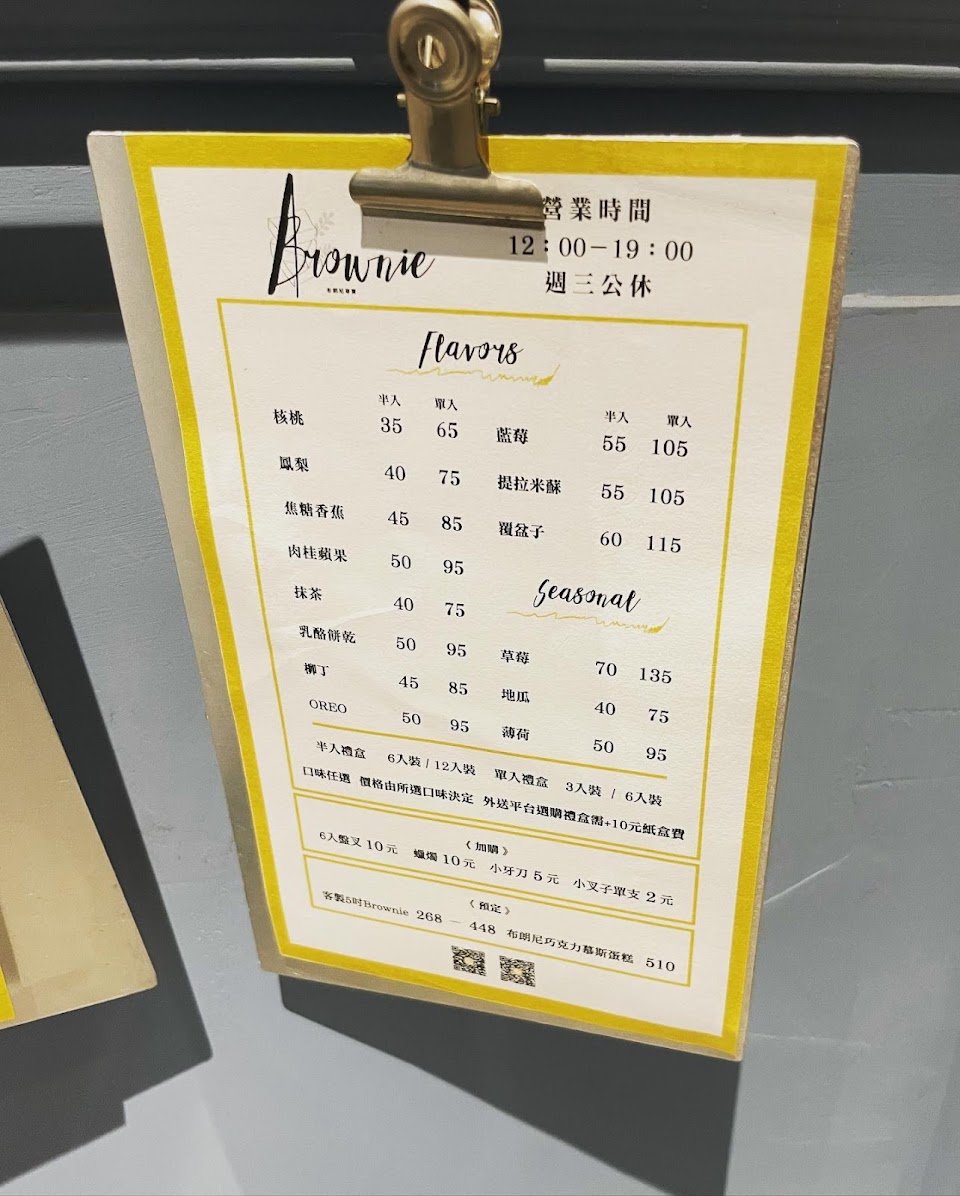 Brownie
布朗尼專賣
營業時間
12：00－19：00
週三公休
Flavors
半入 單入
核桃 35 65
鳳梨 40 75
焦糖香蕉 45 85
肉桂蘋果 50 95
抹茶 40 75
乳酪餅乾 50 95
柳丁 45 85
OREO 50 95
半入 單入
藍莓 55 105
提拉米蘇 55 105
覆盆子 60 115
Seasonal
草莓 70 135
地瓜 40 75
薄荷 50 95
半入禮盒 6入裝 / 12入裝 單入禮盒 3入裝 / 6入裝
口味任選 價格由所選口味決定 外送平台選購禮盒需+10元紙盒費
《 加購 》
6入盤叉 10 元 蠟燭 10 元 小牙刀 5 元 小叉子單支 2 元
《 預定 》
客製5吋Brownie 268 － 448 布朗尼巧克力慕斯蛋糕 510